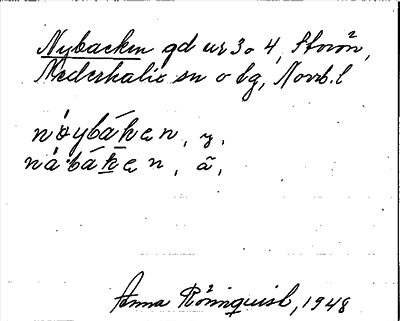 Nybacken gd ur 3 o 4, Storön,
Nederkalix sn o lg, Norrb. l
nöybákɛn, y.
nábákɛn, ã,
Anna Rönnquist, 1948